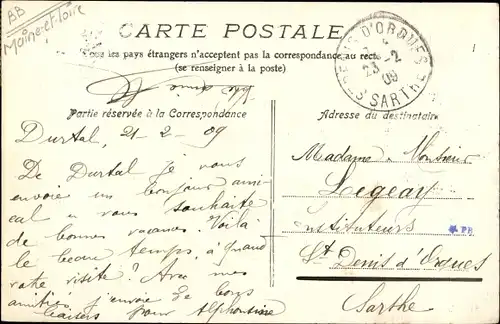 BB
Maine-et-Loire
CARTE POSTALE
Tous les pays étrangers n'acceptent pas la correspondance au recto
(se renseigner à la poste)
ST DENIS D'ORQUES
23 -2
09
SARTHE
Partie réservée à la Correspondance
Adresse du destinataire
Durtal, 21-2-09
De Durtal je vous
envoie un bonjour ami-
cal et vous souhaite
de bonnes vacances. Voilà
le beau temps, à quand
votre visite ? Avec mes
amitiés, j'envoie de bons
baisers pour Alphonsine
Madame, Monsieur
Legeay
Instituteurs
St Denis d'Orques
Sarthe
PH